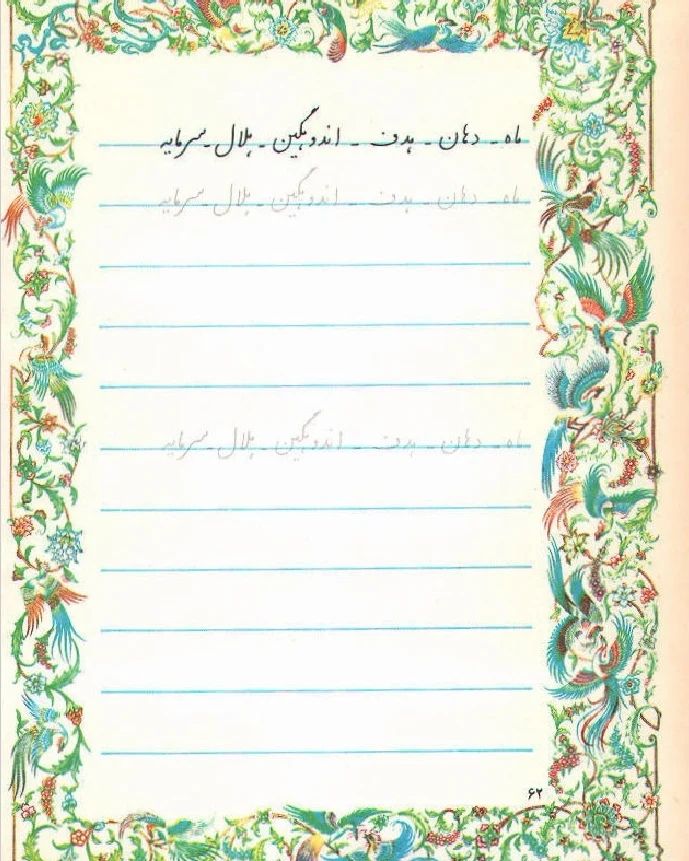 ماه ـ دهان ـ هدف ـ اندوهگین ـ هلال ـ سرمایه
ماه ـ دهان ـ هدف ـ اندوهگین ـ هلال ـ سرمایه
ماه ـ دهان ـ هدف ـ اندوهگین ـ هلال ـ سرمایه
۶۲